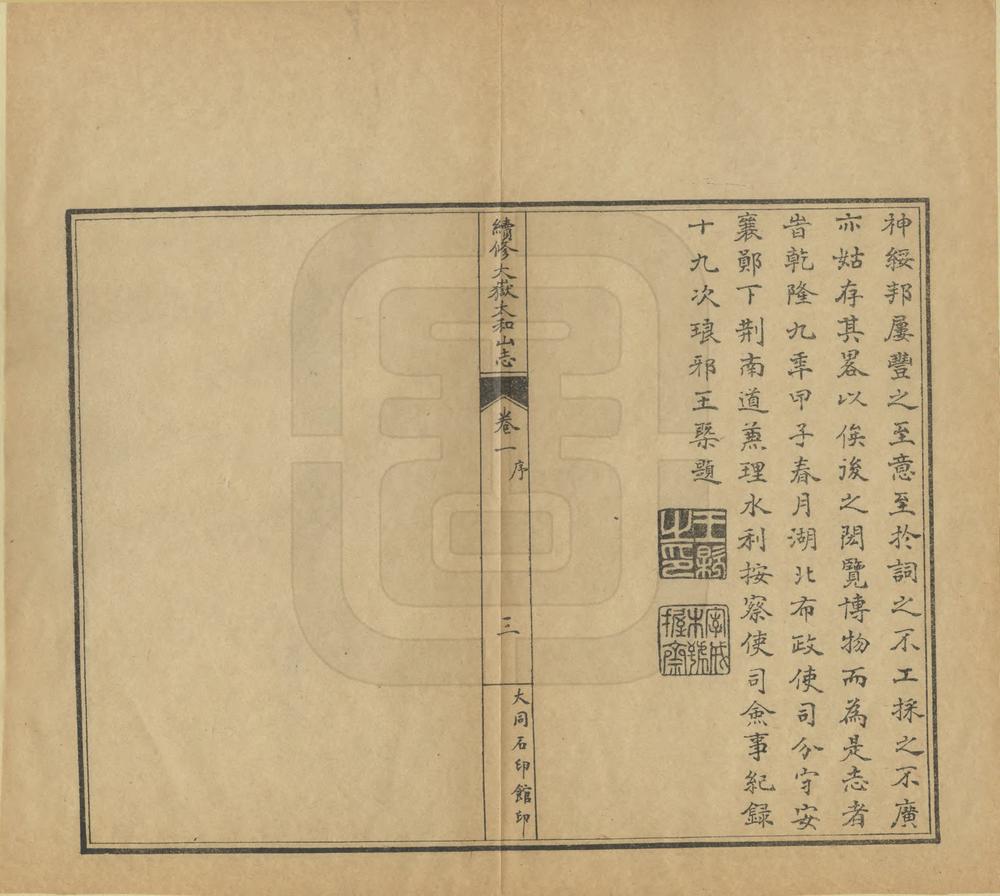 神綏邦屢豐之至意至於詞之不工採之不廣
亦姑存其畧以俟後之閎覽博物而為是志者
旹乾隆九年甲子春月湖北布政使司分守安
襄鄖下荆南道兼理水利按察使司僉事紀録
十九次琅邪王槩題
王槩之印
字成木號握齋
續修大嶽太和山志
卷一 序
三
大同石印館印